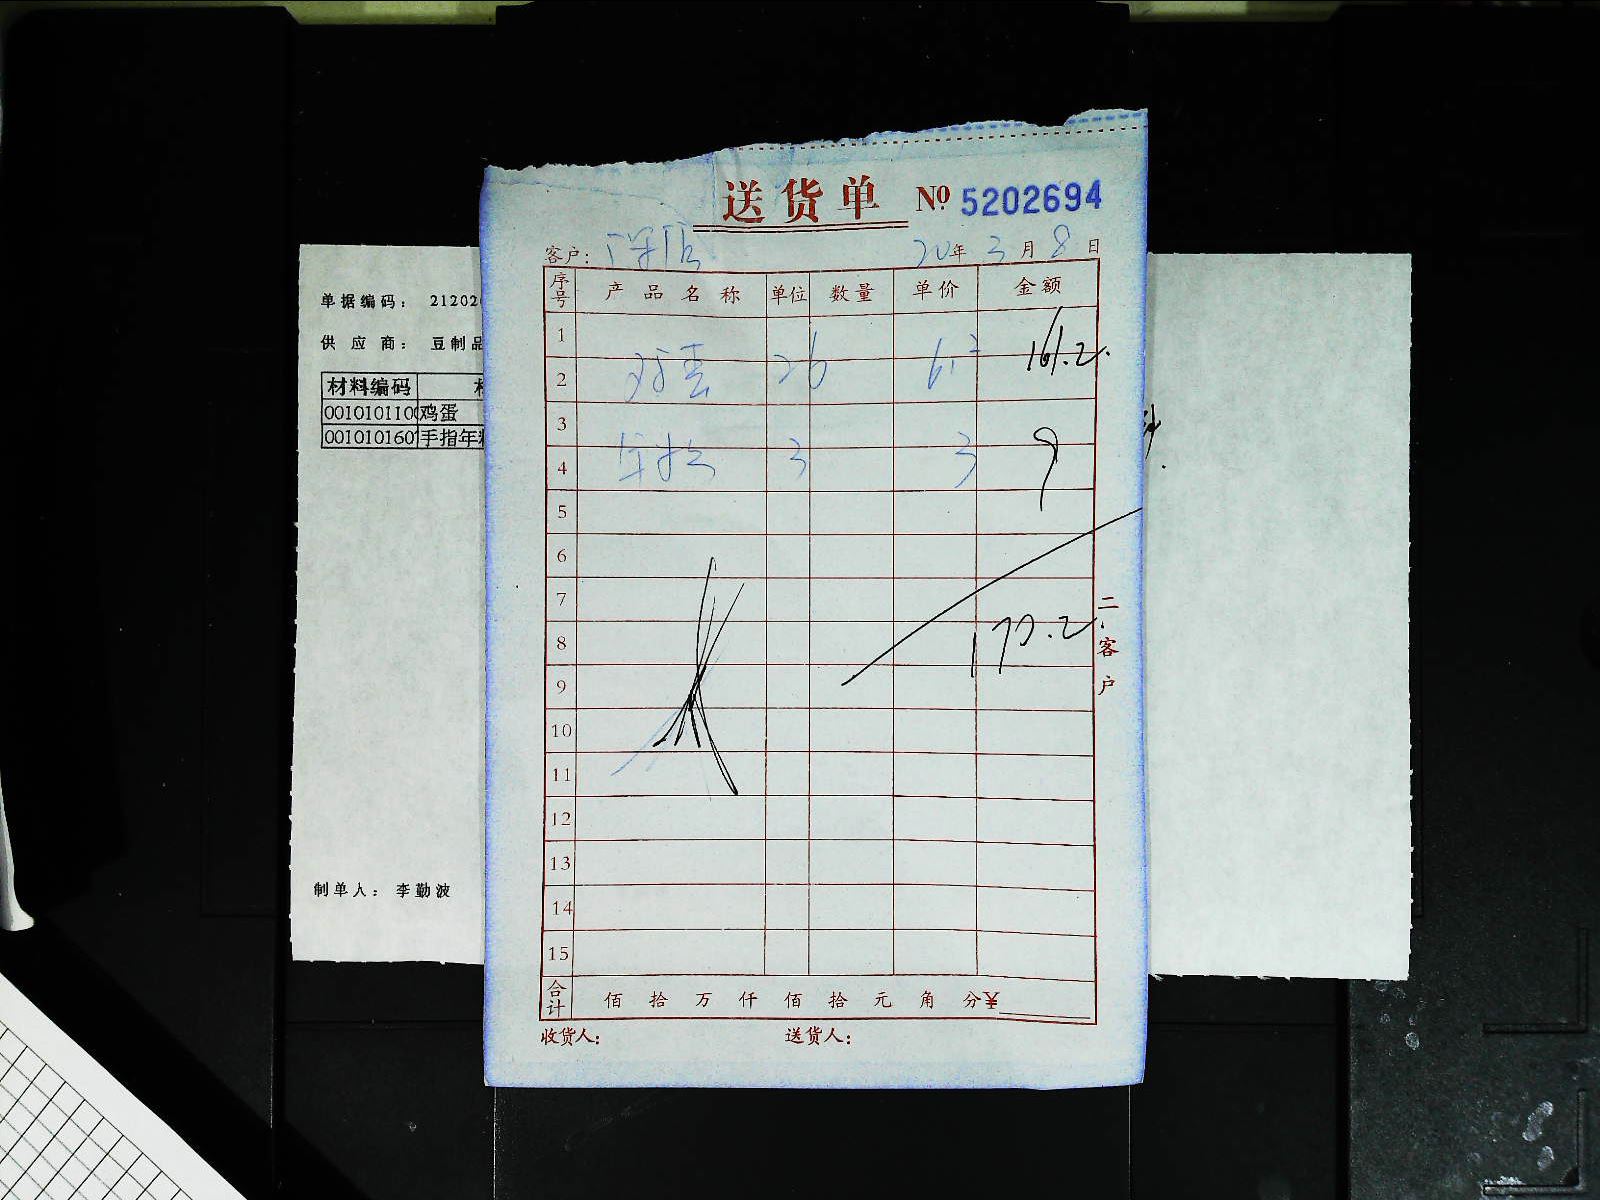 送货单 № 5202694
客户: 20年 3月 8日
序号 产品名称 单位 数量 单价 金额
1
2 鸡蛋 26 6.2 161.2
3
4 年糕 3 3 9
5
6
7
8 170.2
9
10
11
12
13
14
15
合计 佰 拾 万 仟 佰 拾 元 角 分 ¥
收货人: 送货人:
二.客户
单据编码: 21202
供应商: 豆制品
材料编码
0010101100 鸡蛋
001010160 手指年
制单人: 李勤波